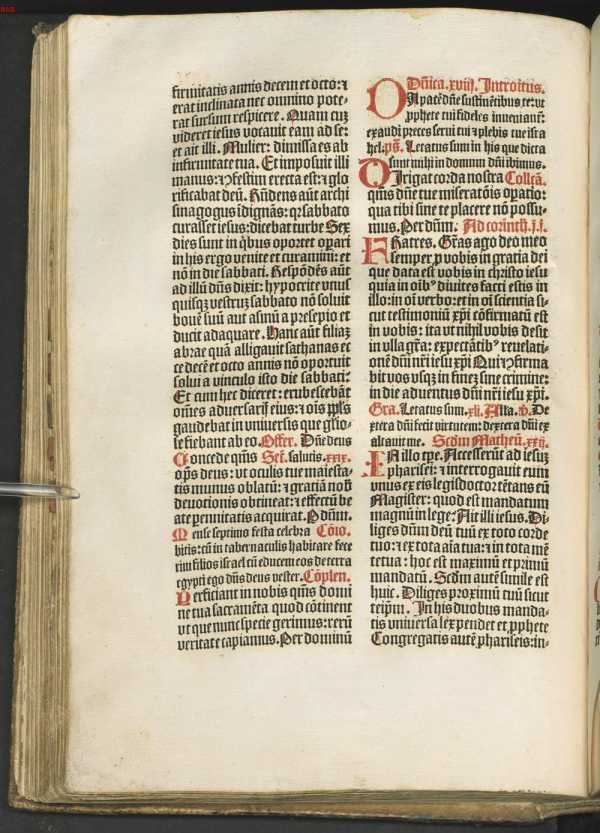 firmitatis annis decem et octo: ⁊
erat inclinata nec omnino pote-
rat sursum respicere. Quam cuꝫ
videret iesus vocauit eam ad se:
et ait illi. Mulier: dimissa es ab
infirmitate tua. Et imposuit illi
manus: ⁊ ꝯfestim erecta est: ⁊ glo
rificabat deū. Rn̄dens aūt archi
sinagogus īdignās: qꝛ sabbato
curasset iesus: dicebat turbe Sex
dies sunt in qͥbus oportet oꝑari
in his ergo venite et curamini: et
nō in die sabbati. Respōdēs aūt
ad illū dn̄s dixit: hypocrite vnus
quisqꝫ vestruꝫ sabbato nō soluit
bouē suū aut asinū a presepio et
ducit adaquare. Hanc aūt filiaꝫ
abrae quā alligauit sathanas ec
ce decē et octo annis nō oportuit
solui a vinculo isto die sabbati:
Et cum hec diceret: erubescebāt
om̄es aduersarij eius: et oīs ppl̄s
gaudebat in vniuersis que glīo-
se fiebant ab eo. Offer. Dn̄e deus
Concede qm̄s Sēt. salutis. xxix.
om̄ps deus: vt oculis tue maiesta-
tis munus oblatū: ⁊ gratiā nob̄
deuotionis obtineat: ⁊ effectū be
ate pennitatis acquirat. P dn̄m.
Mense septimo festa celebra Cōio.
bitis: cū in tabernaculis habitare fece
rim filios israel cū educem eos de terra
egypti ego dn̄s deus vester. Cōplen.
Perficiant in nobis qm̄s domi
ne tua sacramēta quod cōtinent
vt que nunc specie gerimus: rerū
veritate capiamus. Per dominū
Dn̄ica. xviij. Introitus.
DA pacē dn̄e sustinētibus te: vt
ꝓphete tui fideles inueniant̄:
exaudi preces serui tui ⁊ plebis tue isra
hel: ps̄. Letatus sum in his que dicta
sunt mihi in domum dn̄i ibimus.
DIrigat corda nostra Collc̄a.
qm̄s dn̄e tue miseratōis oꝑatio:
qua tibi sine te placere nō possu-
mus. Per dn̄m. Ad corinth. j. f.
FRatres. Gr̄as ago deo meo
semper ꝓ vobis in gratia dei
que data est vobis in christo iesu
quia in oībꝰ diuites facti estis in
illo: in oī verbo: et in oī scientia si-
cut testimoniū xp̄i cōfirmatū est
in vobis: ita vt nihil vobis desit
in vlla gr̄a: expectātibꝰ reuelati-
onē dn̄i nr̄i iesu xp̄i Qui ⁊ ꝯfirma
bit vos vsqꝫ in fineꝫ sine crimine:
in die aduentus dn̄i nr̄i iesu xp̄i.
Gra. Letatus sum. xlj. Alla. v̄. De
xtera dn̄i fecit virtutem: dextera dn̄i ex
altauit me. Scd̄m Matheū. xxij.
IN illo tp̄e. Accesserūt ad iesuꝫ
pharisei: ⁊ interrogauit eum
vnus ex eis legisdoctor: tētans eū
Magister: quod est mandatum
magnū in lege: Ait illi iesus. Di-
liges dn̄m deū tuū ex toto corde
tuo: ⁊ ex tota aīa tua: ⁊ in tota mē
te tua: hoc est maximū et primū
mandatū. Scd̄m autē simile est
huic. Diliges proximū tuū sicut
teip̄m. In his duobus manda-
tis vniuersa lex pendet et ꝓphete
Congregatis autē phariseis: in-